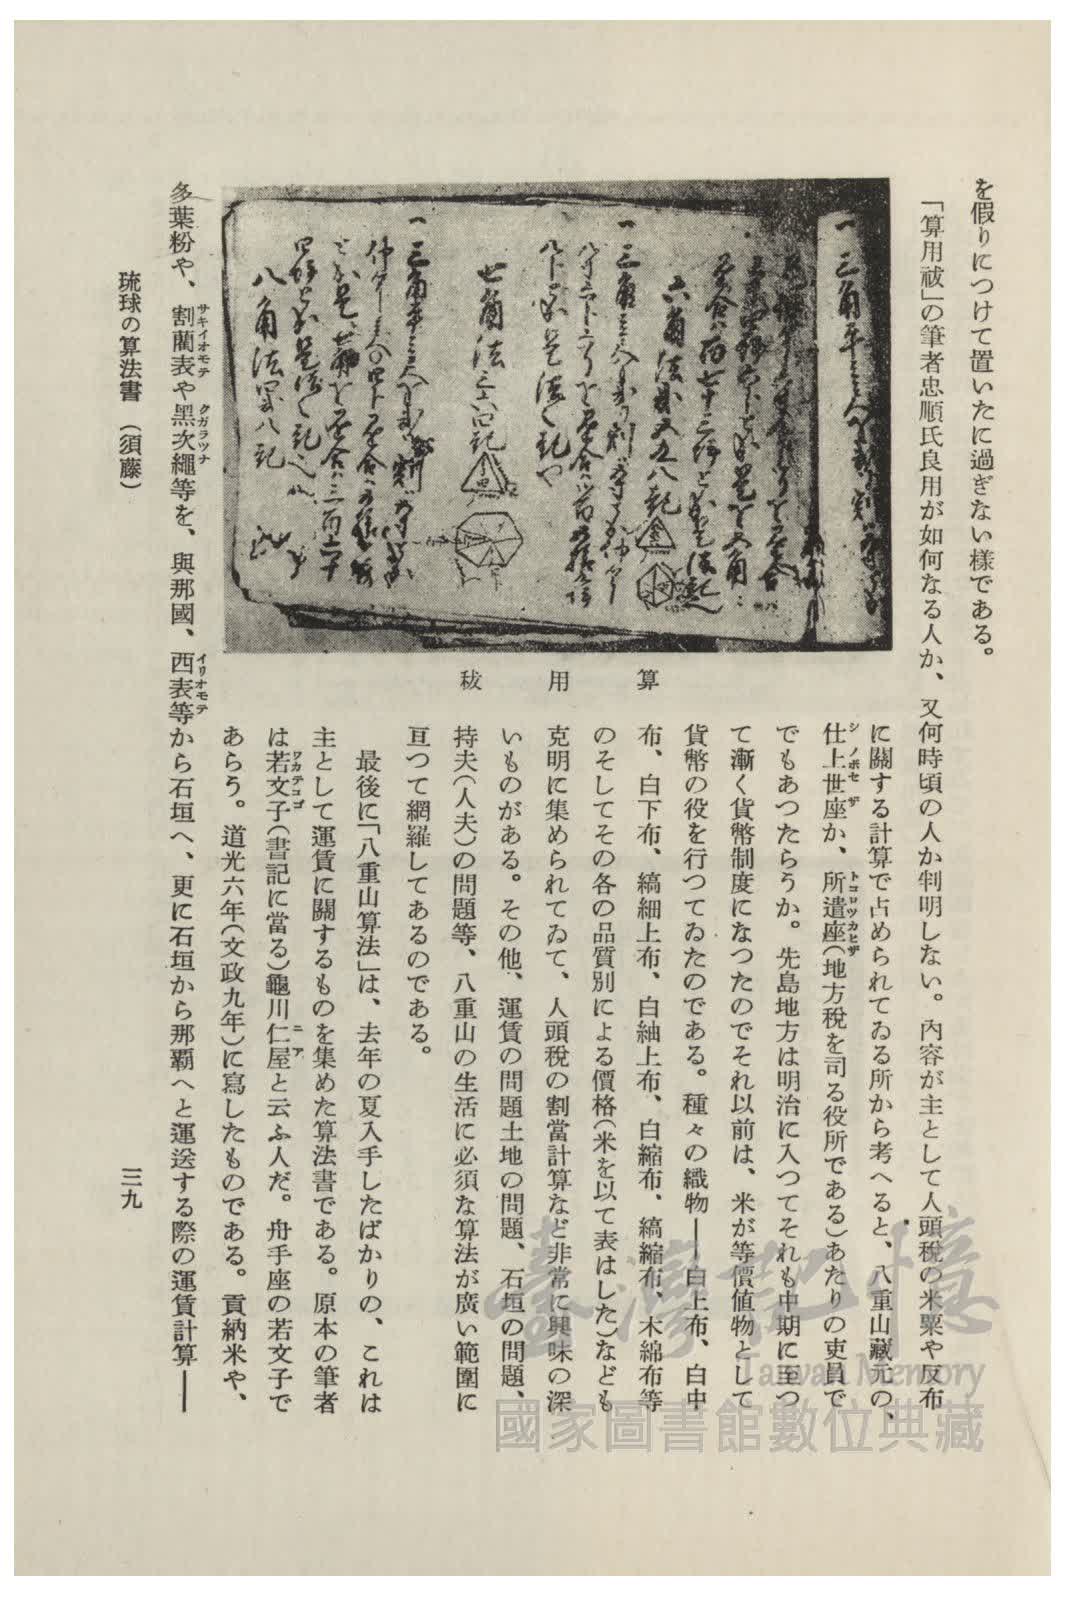 を假りにつけて置いたに過ぎない樣である。
「算用祓」の筆者忠順氏良用が如何なる人か、又何時頃の人か判明しない。內容が主として人頭稅の米粟や反布
に關する計算で占められてゐる所から考へると、八重山藏元の、
仕上世座か、所遣座(地方稅を司る役所である)あたりの吏員で
シノボセザ
トコロツカヒザ
でもあつたらうか。先島地方は明治に入つてそれも中期に至つ
て漸く貨幣制度になつたのでそれ以前は、米が等價値物として
貨幣の役を行つてゐたのである。種々の織物——白上布、白中
布、白下布、縞細上布、白紬上布、白縮布、縞縮布、木綿布等
のそしてその各の品質別による價格(米を以て表はした)なども
克明に集められてゐて、人頭稅の割當計算など非常に興味の深
いものがある。その他、運賃の問題土地の問題、石垣の問題、
持夫(人夫)の問題等、八重山の生活に必須な算法が廣い範圍に
亘つて網羅してあるのである。
最後に「八重山算法」は、去年の夏入手したばかりの、これは
主として運賃に關するものを集めた算法書である。原本の筆者
は若文子(書記に當る)龜川仁屋と云ふ人だ。舟手座の若文子で
ワカテコゴ
ニア
あらう。道光六年(文政九年)に寫したものである。貢納米や、
多葉粉や、割藺表や黑次繩等を、與那國、西表等から石垣へ、更に石垣から那覇へと運送する際の運賃計算——
サキイオモテ
クガラツナ
イリオモテ
算用祓
一三角平
六角法
七角法
八角法
琉球の算法書 (須藤)
三九
臺灣記憶
Taiwan Memory
國家圖書館數位典藏